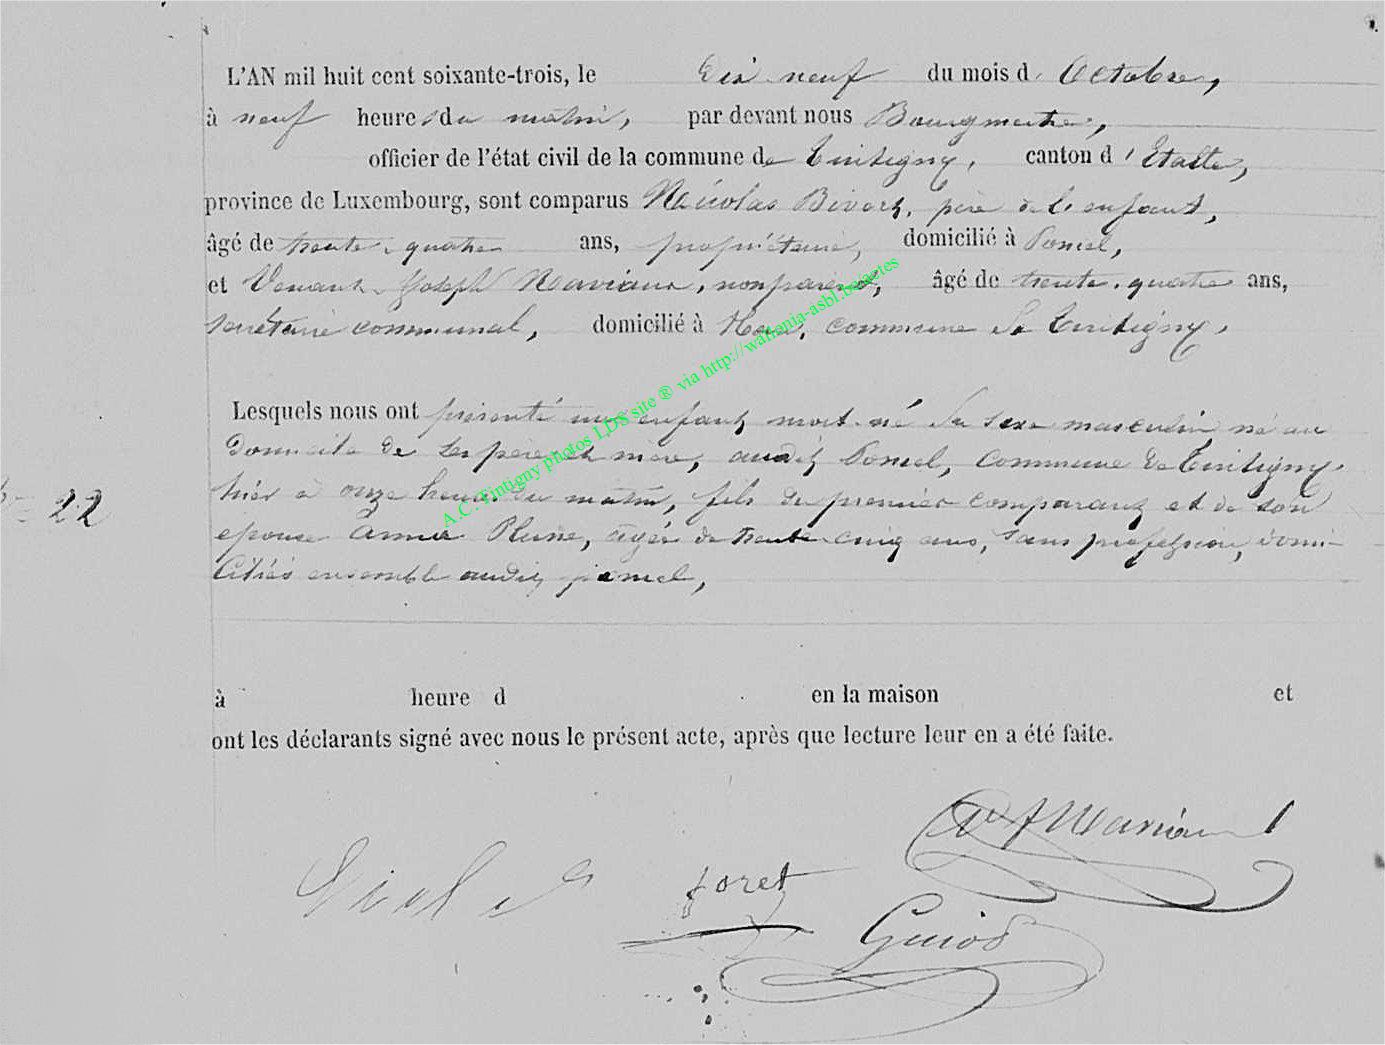 L'AN mil huit cent soixante-trois, le dix neuf du mois d'Octobre,
à neuf heures du matin, par devant nous Bourgmestre,
officier de l'état civil de la commune de Tintigny, canton d'Etalle,
province de Luxembourg, sont comparus Nicolas père de l'enfant,
âgé de trente-quatre ans, propriétaire, domicilié à
et Joseph Maviaux, non parent, âgé de trente-quatre ans,
secrétaire communal, domicilié à commune de Tintigny,
Lesquels nous ont présenté un enfant mort-né du sexe masculin, né au
domicile de ses père et mère, audit commune de Tintigny,
hier à onze heures du matin, fils du premier comparant et de son
épouse Anne âgée de trente-cinq ans, sans profession, domi-
ciliés ensemble audit
22
à heure d en la maison et
ont les déclarants signé avec nous le présent acte, après que lecture leur en a été faite.
foret
Guiot
A.C. Tintigny photos LDS site ® via http://wallonia-asbl.be/actes